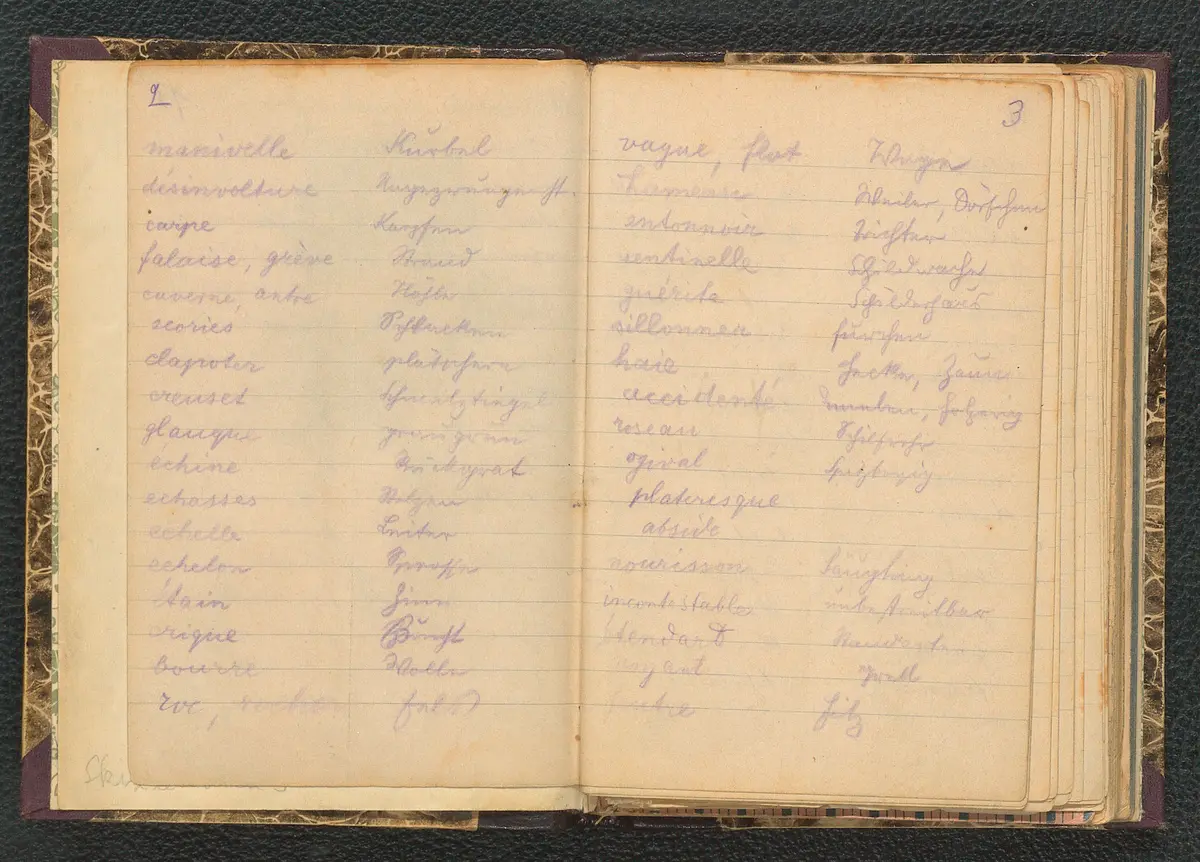 2
manivelle Kurbel
désinvolture Ungezwungenht.
carpe Karpfen
falaise, grève Strand
caverne, antre Höhle
scories Schlacken
clapoter plätschern
creuset Schmelztiegel
glauque graugrün
échine Rückgrat
échasses Stelzen
echelle Leiter
echelon Sprosse
étain Zinn
crique Bucht
bourre Wolle
roc, rocher Fels
3
vague, flot Woge
hameau Weiler, Dörfchen
entonnoir Trichter
sentinelle Schildwache
guérite Schilderhaus
sillonner furchen
haie Hecke, Zaun
accidenté uneben, holperig
roseau Schilfrohr
ogival spitzbogig
plateresque
abside
nourisson Säugling
incontestable unbestreitbar
étendard Standarte
Grell
feutre Filz